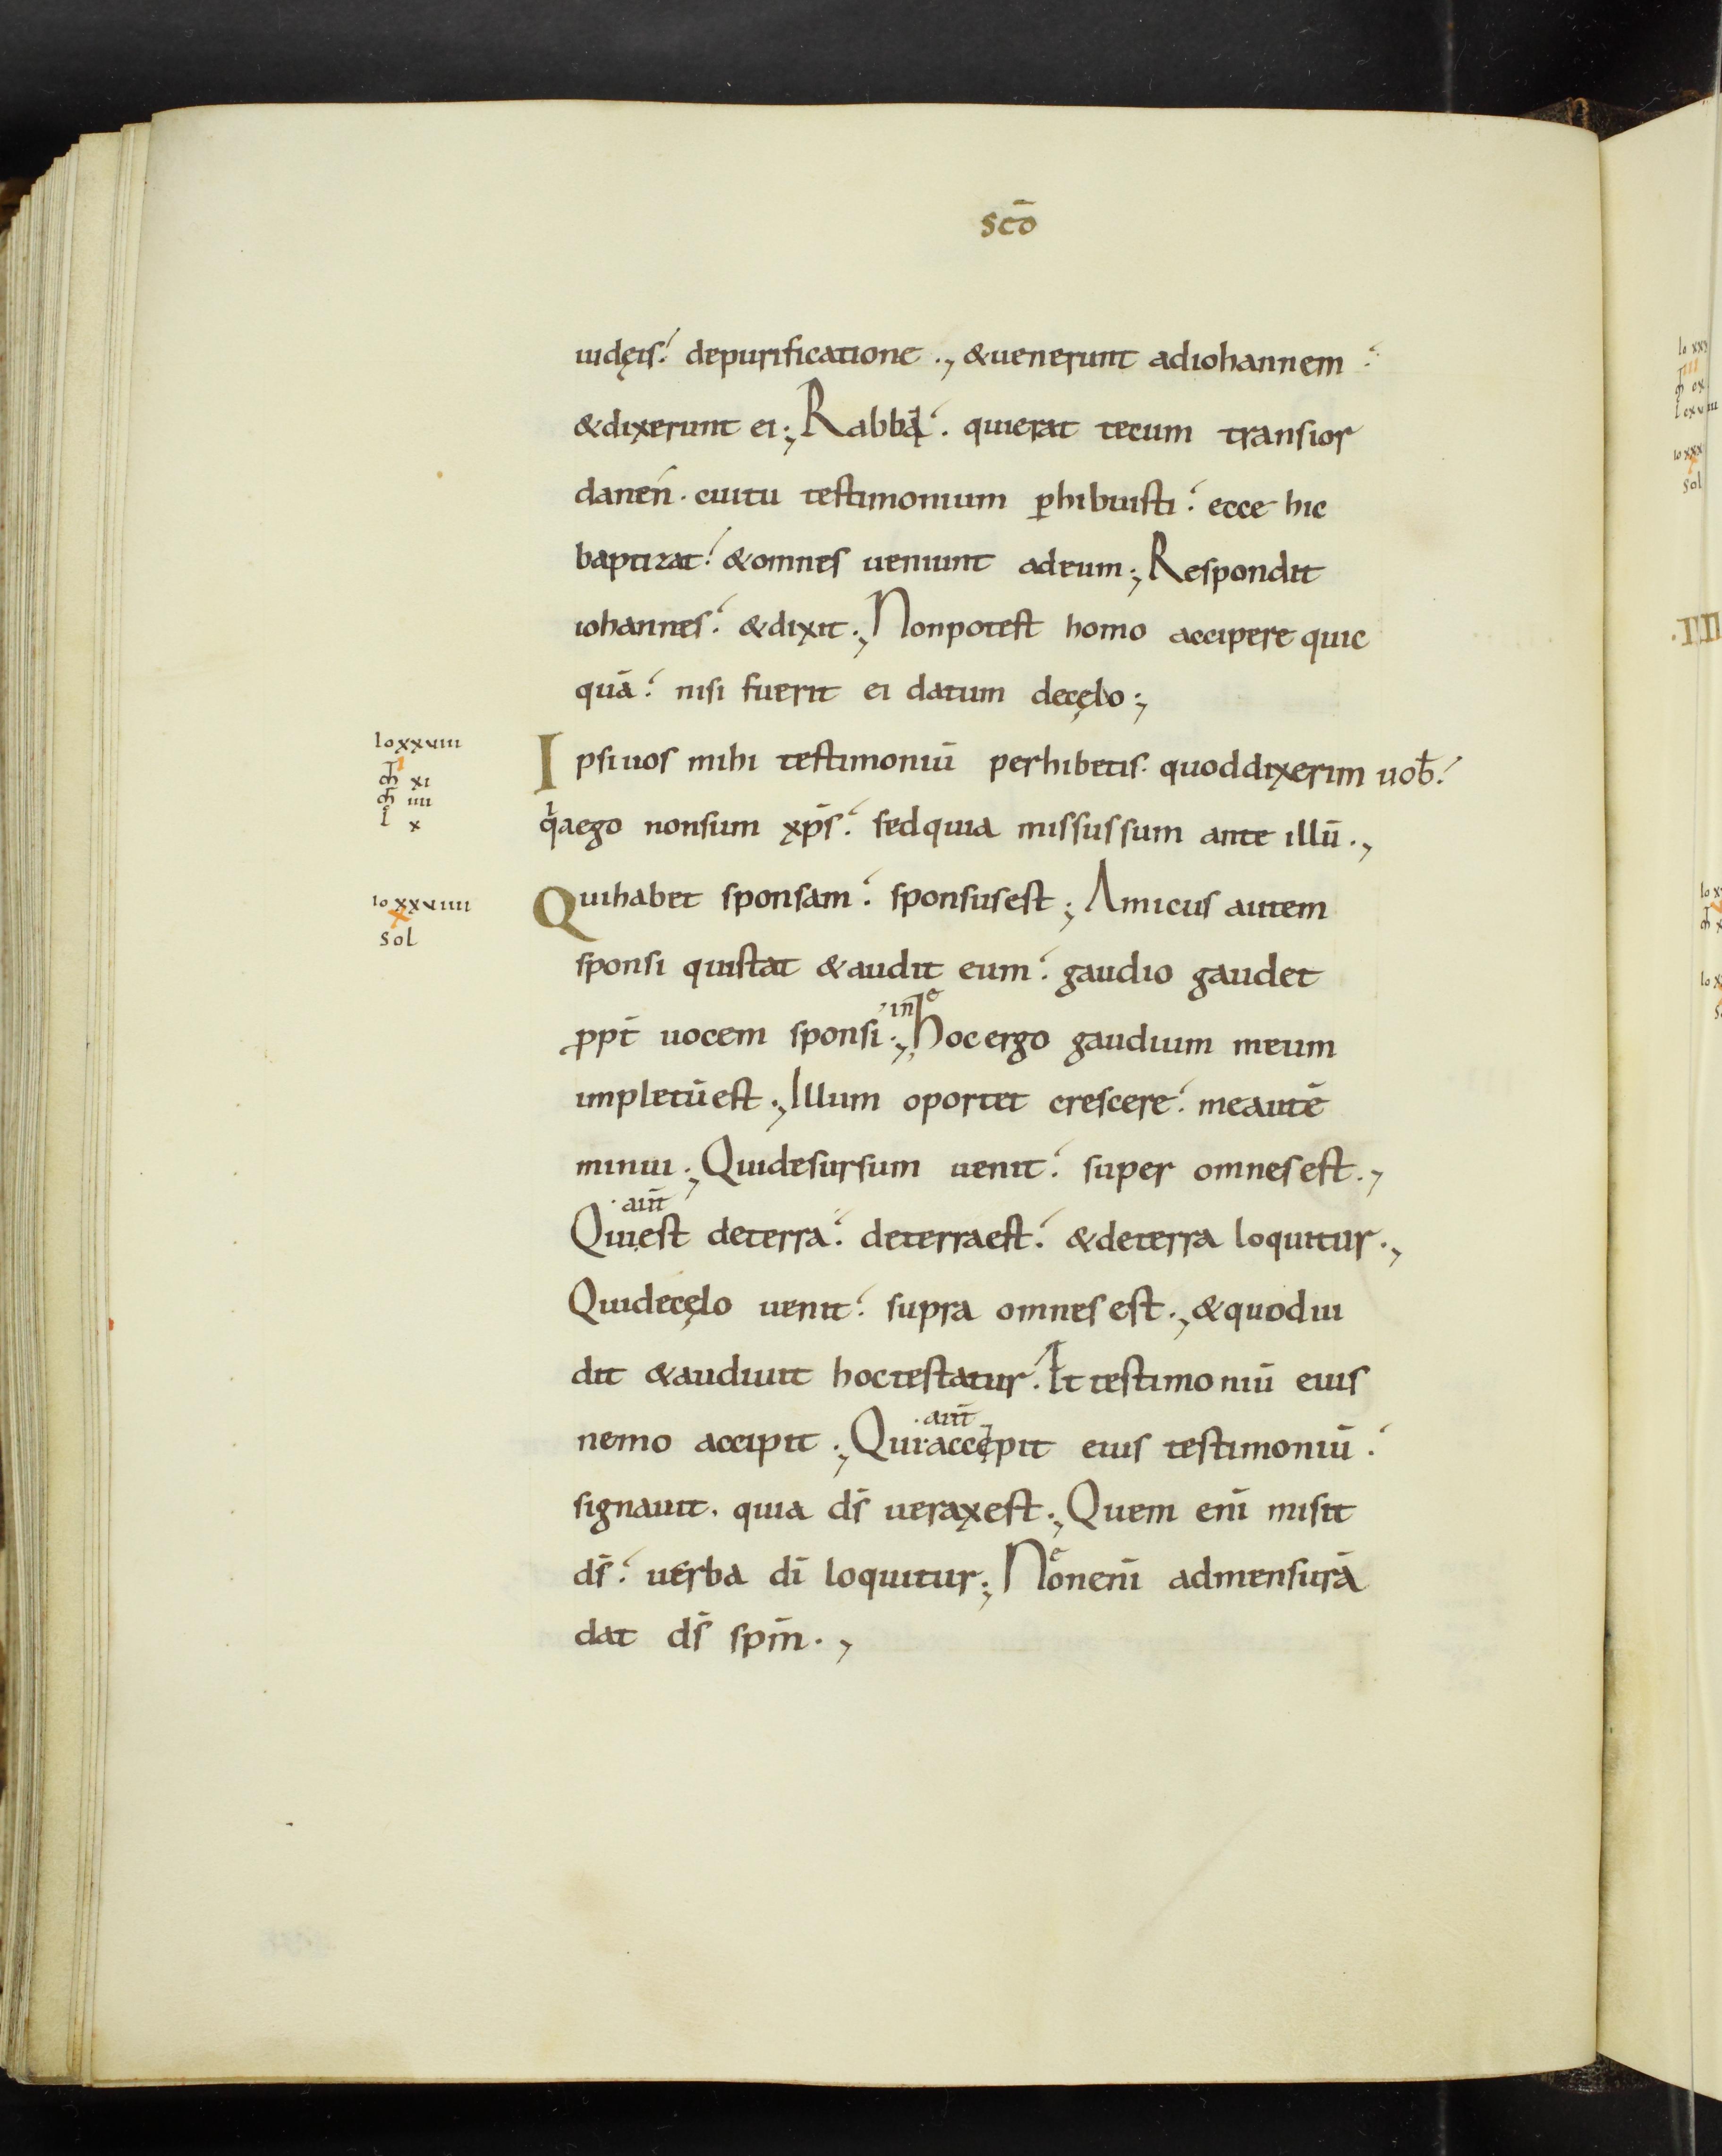 scō
iudęis. depurificatione ., &uenerunt adiohannem
&dixerunt ei; Rabbi. quierat tecum transior
danen. cuitu testimonium ꝑhibuisti. ecce hic
baptizat. &omnes ueniunt adeum; Respondit
iohannes. &dixit; Nonpotest homo accipere quic
quā. nisi fuerit ei datum decęlo;
io xxviii
i
m̄ xi
m̄ iiii
l x
Ipsiuos mihi testimoniū perhibetis. quoddixerim uob̄.
qͥaego nonsum xp̄s. sedquia missussum ante illū.,
io xxviiii
x
sol
Quihabet sponsam. sponsusest; Amicus autem
sponsi quistat &audit eum. gaudio gaudet
ꝓpt̄ uocem sponsi; Hocergo gaudium meum
impletūest; Illum oportet crescere. meautē
minui; Quidesursum uenit. super omnesest.,
aūt
Quiest deterra. deterraest. &deterra loquitur.,
Quidecęlo uenit. supra omnesest., &quodui
dit &audiuit hoctestatur. Et testimoniū eius
aūt
nemo accipit; Quiaccepit eius testimoniū.
signauit. quia ds̄ ueraxest; Quem enī misit
ds̄. uerba dī loquitur; Nonenī admensurā
dat ds̄ spm̄.,
lo xxx
iiii
sol
.III